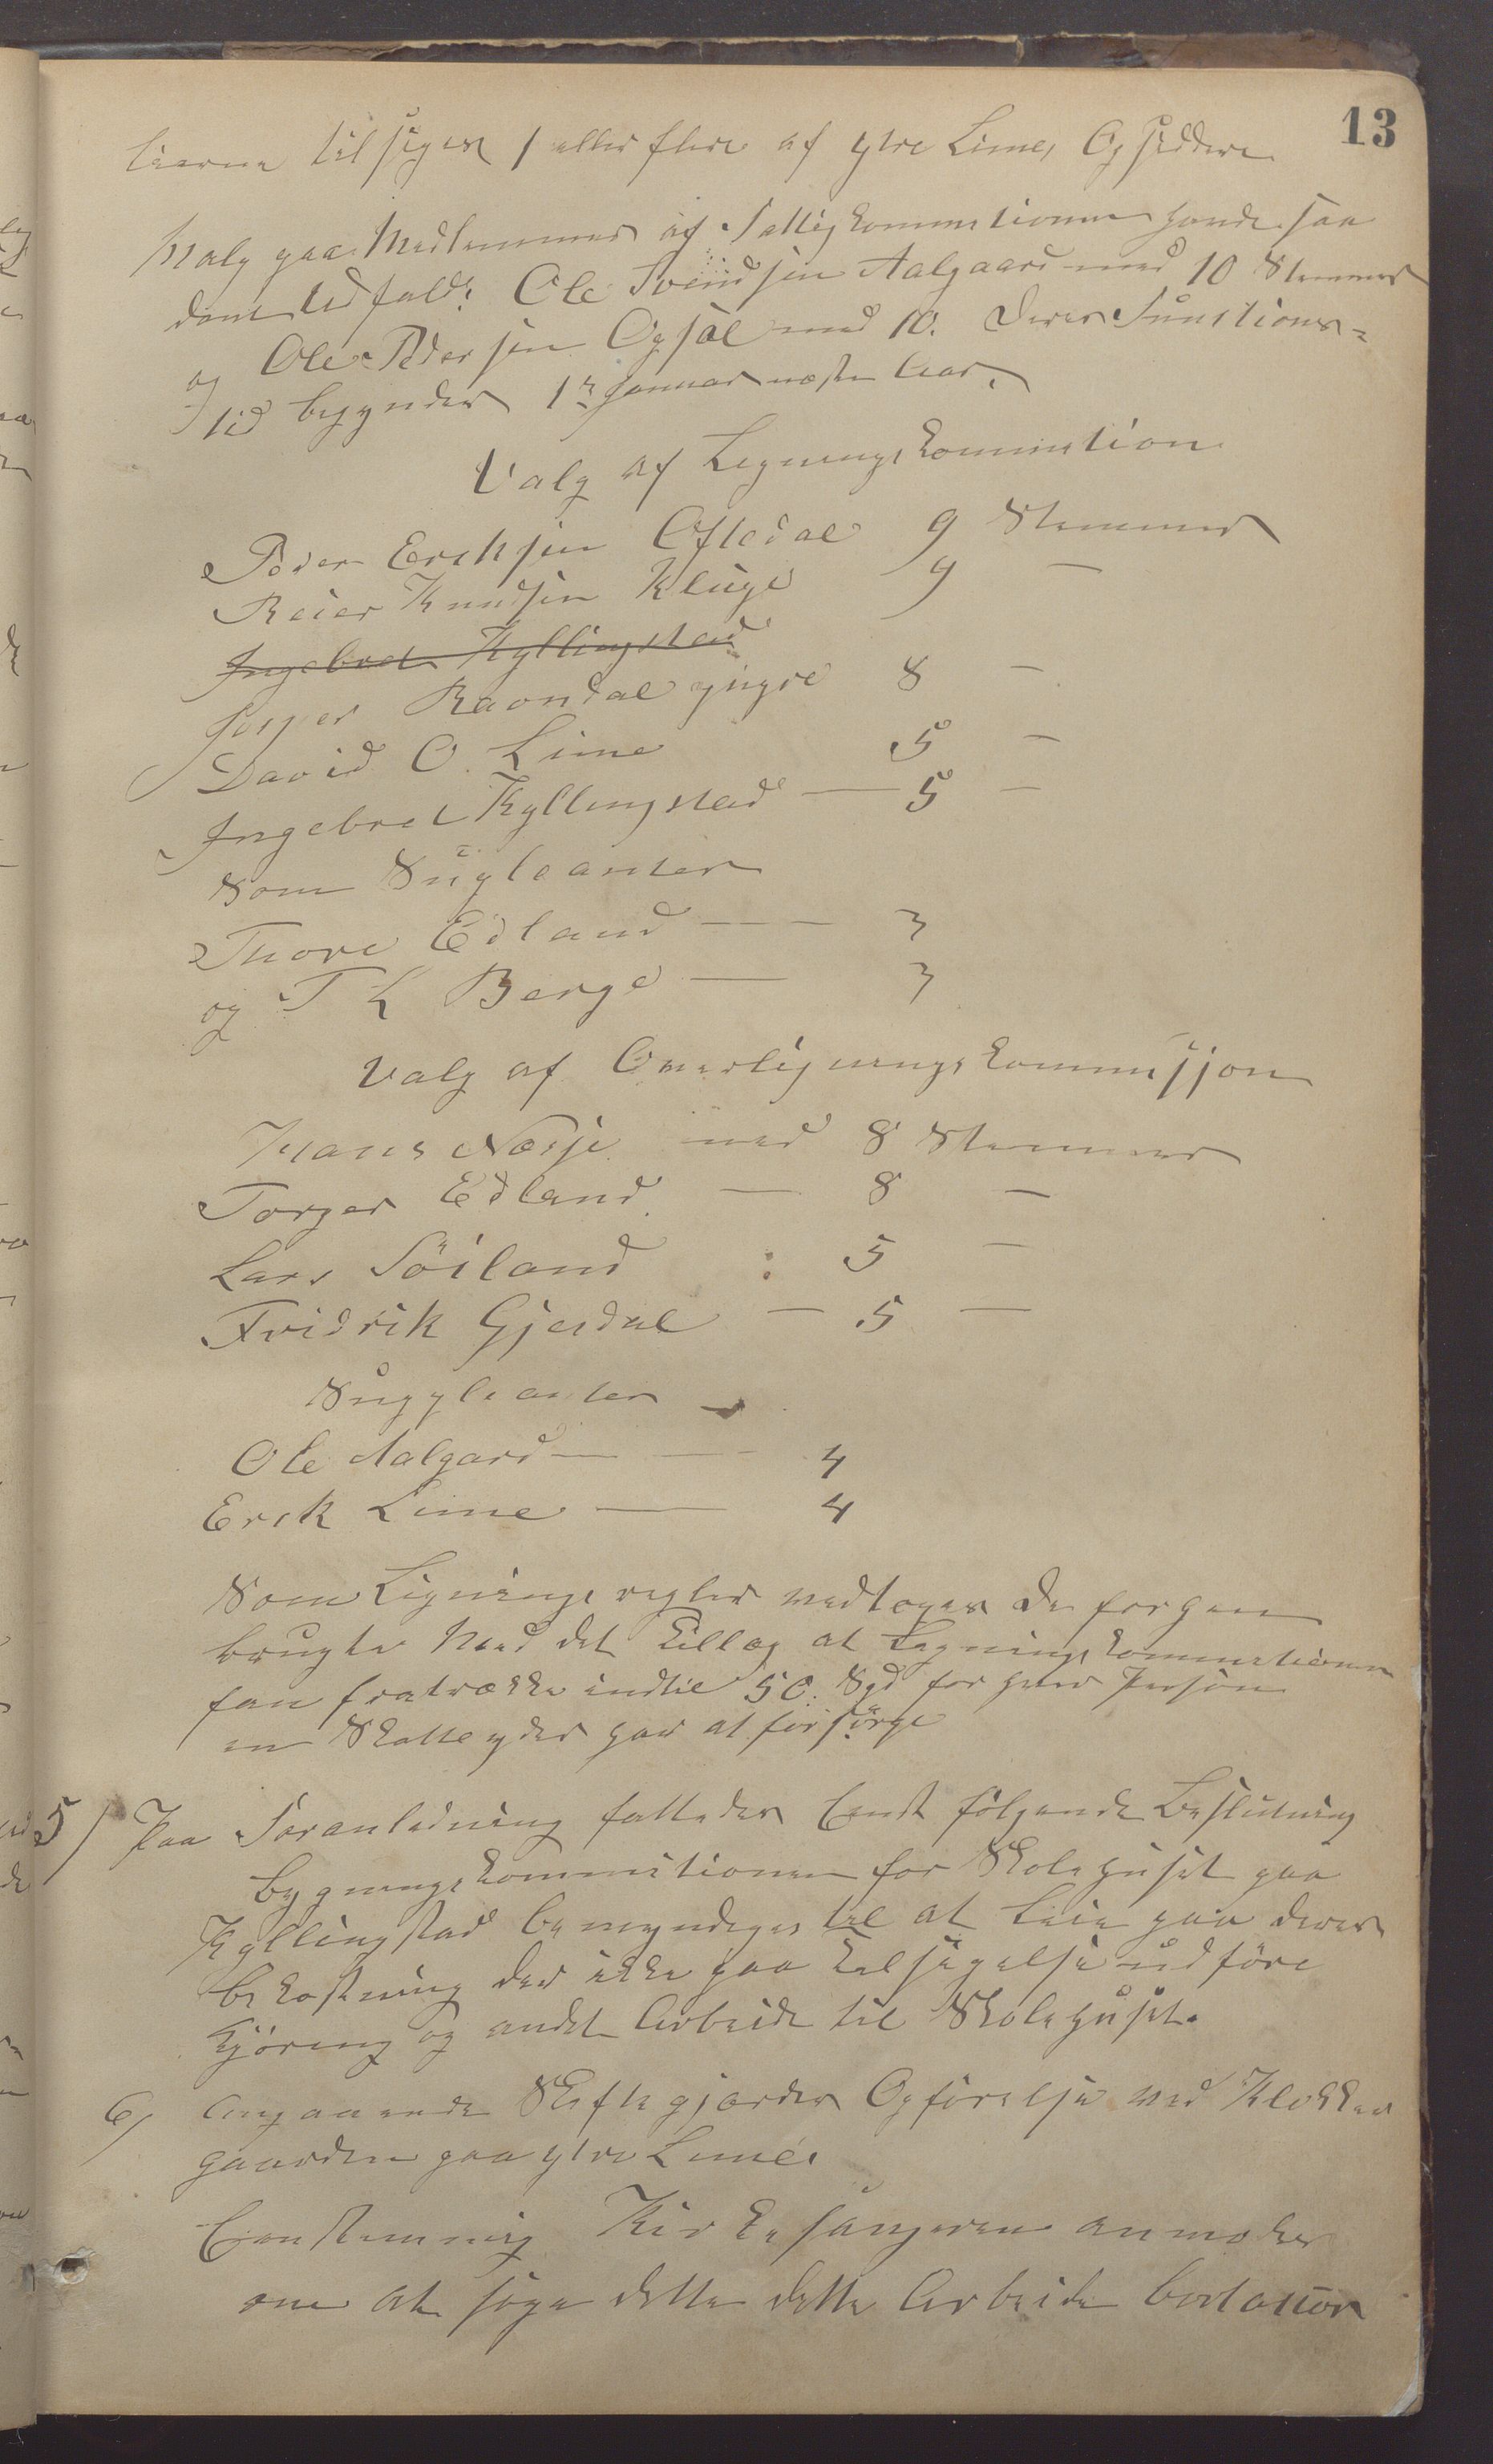 13
tierne tilsiges 1 eller flere af ytre Limes Opsiddere
Valg paa Medlemmer af Fattigkommitionen havde saa
dant Udfald: Ole Svendsen Aalgaard med 10 Stemmer
og Ole Pedersen Opsal med 10. Deres Funktions-
tid begynder 1ste Januar næste Aar.
Valg af Ligningskommition
Peder Eriksen Oftedal 9 Stemmer
Reier Knudsen Kluge 9 —
Ingebret Kyllingstad
Jesper Ravndal yngre 8 —
David O. Lime 5 —
Ingebret Kyllingstad — 5 —
Som Supleanter
Thore Edland — — 3
og T L Berge — 3
Valg af Overligningskommissjon
Hans Næsje med 8 Stemmer
Torger Edland — 8 —
Lars Söiland : 5 —
Fridrik Gjesdal — 5 —
Suppleanter
Ole Aalgard — — 4
Erik Lime — 4
Som Ligningsregler vedtoges de forhen
brugte Med det Tillæg at Ligningskommitionen
kan fratrække indtil 50 Spd for hver Person
en Skatteyder har at forsörge
5/ Paa Foranledning fattedes Eenst fölgende Beslutning
Bygningskommitionen for Skolehuset paa
Kyllingstad bemyndiges til at leie paa deres
Bekostning der ikke paa Tilsigelse udföre
Kjöring og andet Arbeide til Skolehuset.
6/ Angaaende Skiftegjærdes Opförelse ved Klokker
gaarden paa ytre Lime.
Eenstemmig Kirkesangeren anmodes
om at söge dette dette Arbeide bort